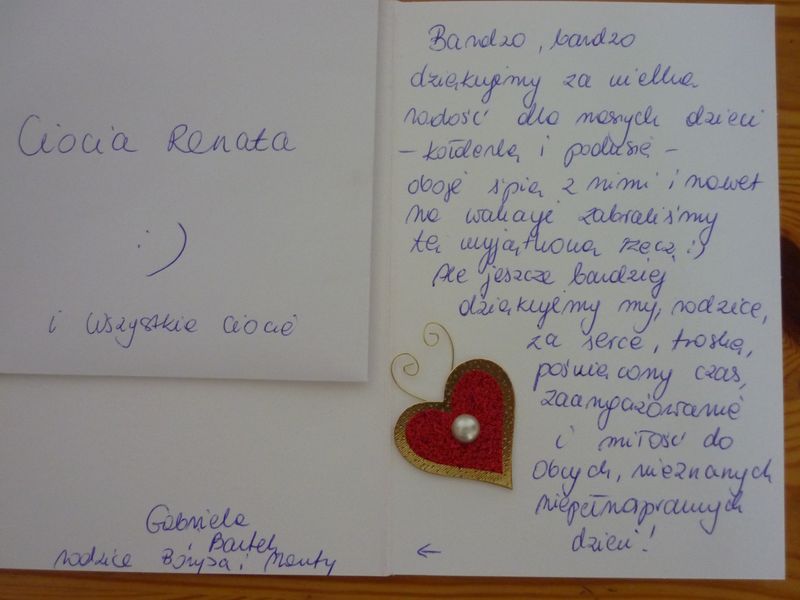 Ciocia Renata
:)
i wszystkie ciocie
Bardzo, bardzo
dziękujemy za wielką
radość dla naszych dzieci
- kołderką i podusię -
oboje śpią z nimi i nawet
na wakacje zabraliśmy
tę wyjątkową rzecz :)
Ale jeszcze bardziej
dziękujemy my, rodzice,
za serce, troskę,
poświęcony czas,
zaangażowanie
i miłość do
obcych, nieznanych
niepełnosprawnych
dzieci!
←
Gabriela
Bartek
rodzice Borysa i